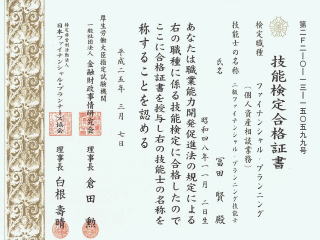 第二F2-一〇-一三-一五〇五九九号
技能検定合格証書
検定職種 ファイナンシャル・プランニング
(個人資産相談業務)
技能士の名称 二級ファイナンシャル・プランニング技能士
氏名 冨田 賢 殿
昭和四八年一一月二日生
あなたは職業能力開発促進法の規定による
右の職種に係る技能検定に合格したので
ここに合格証書を授与し右の技能士の名称を
称することを認める
平成二五年 三月 七日
厚生労働大臣指定試験機関
一般社団法人 金融財政事情研究会
理事長 倉田 勲
日本ファイナンシャル・プランナーズ協会
理事長 白根 壽晴